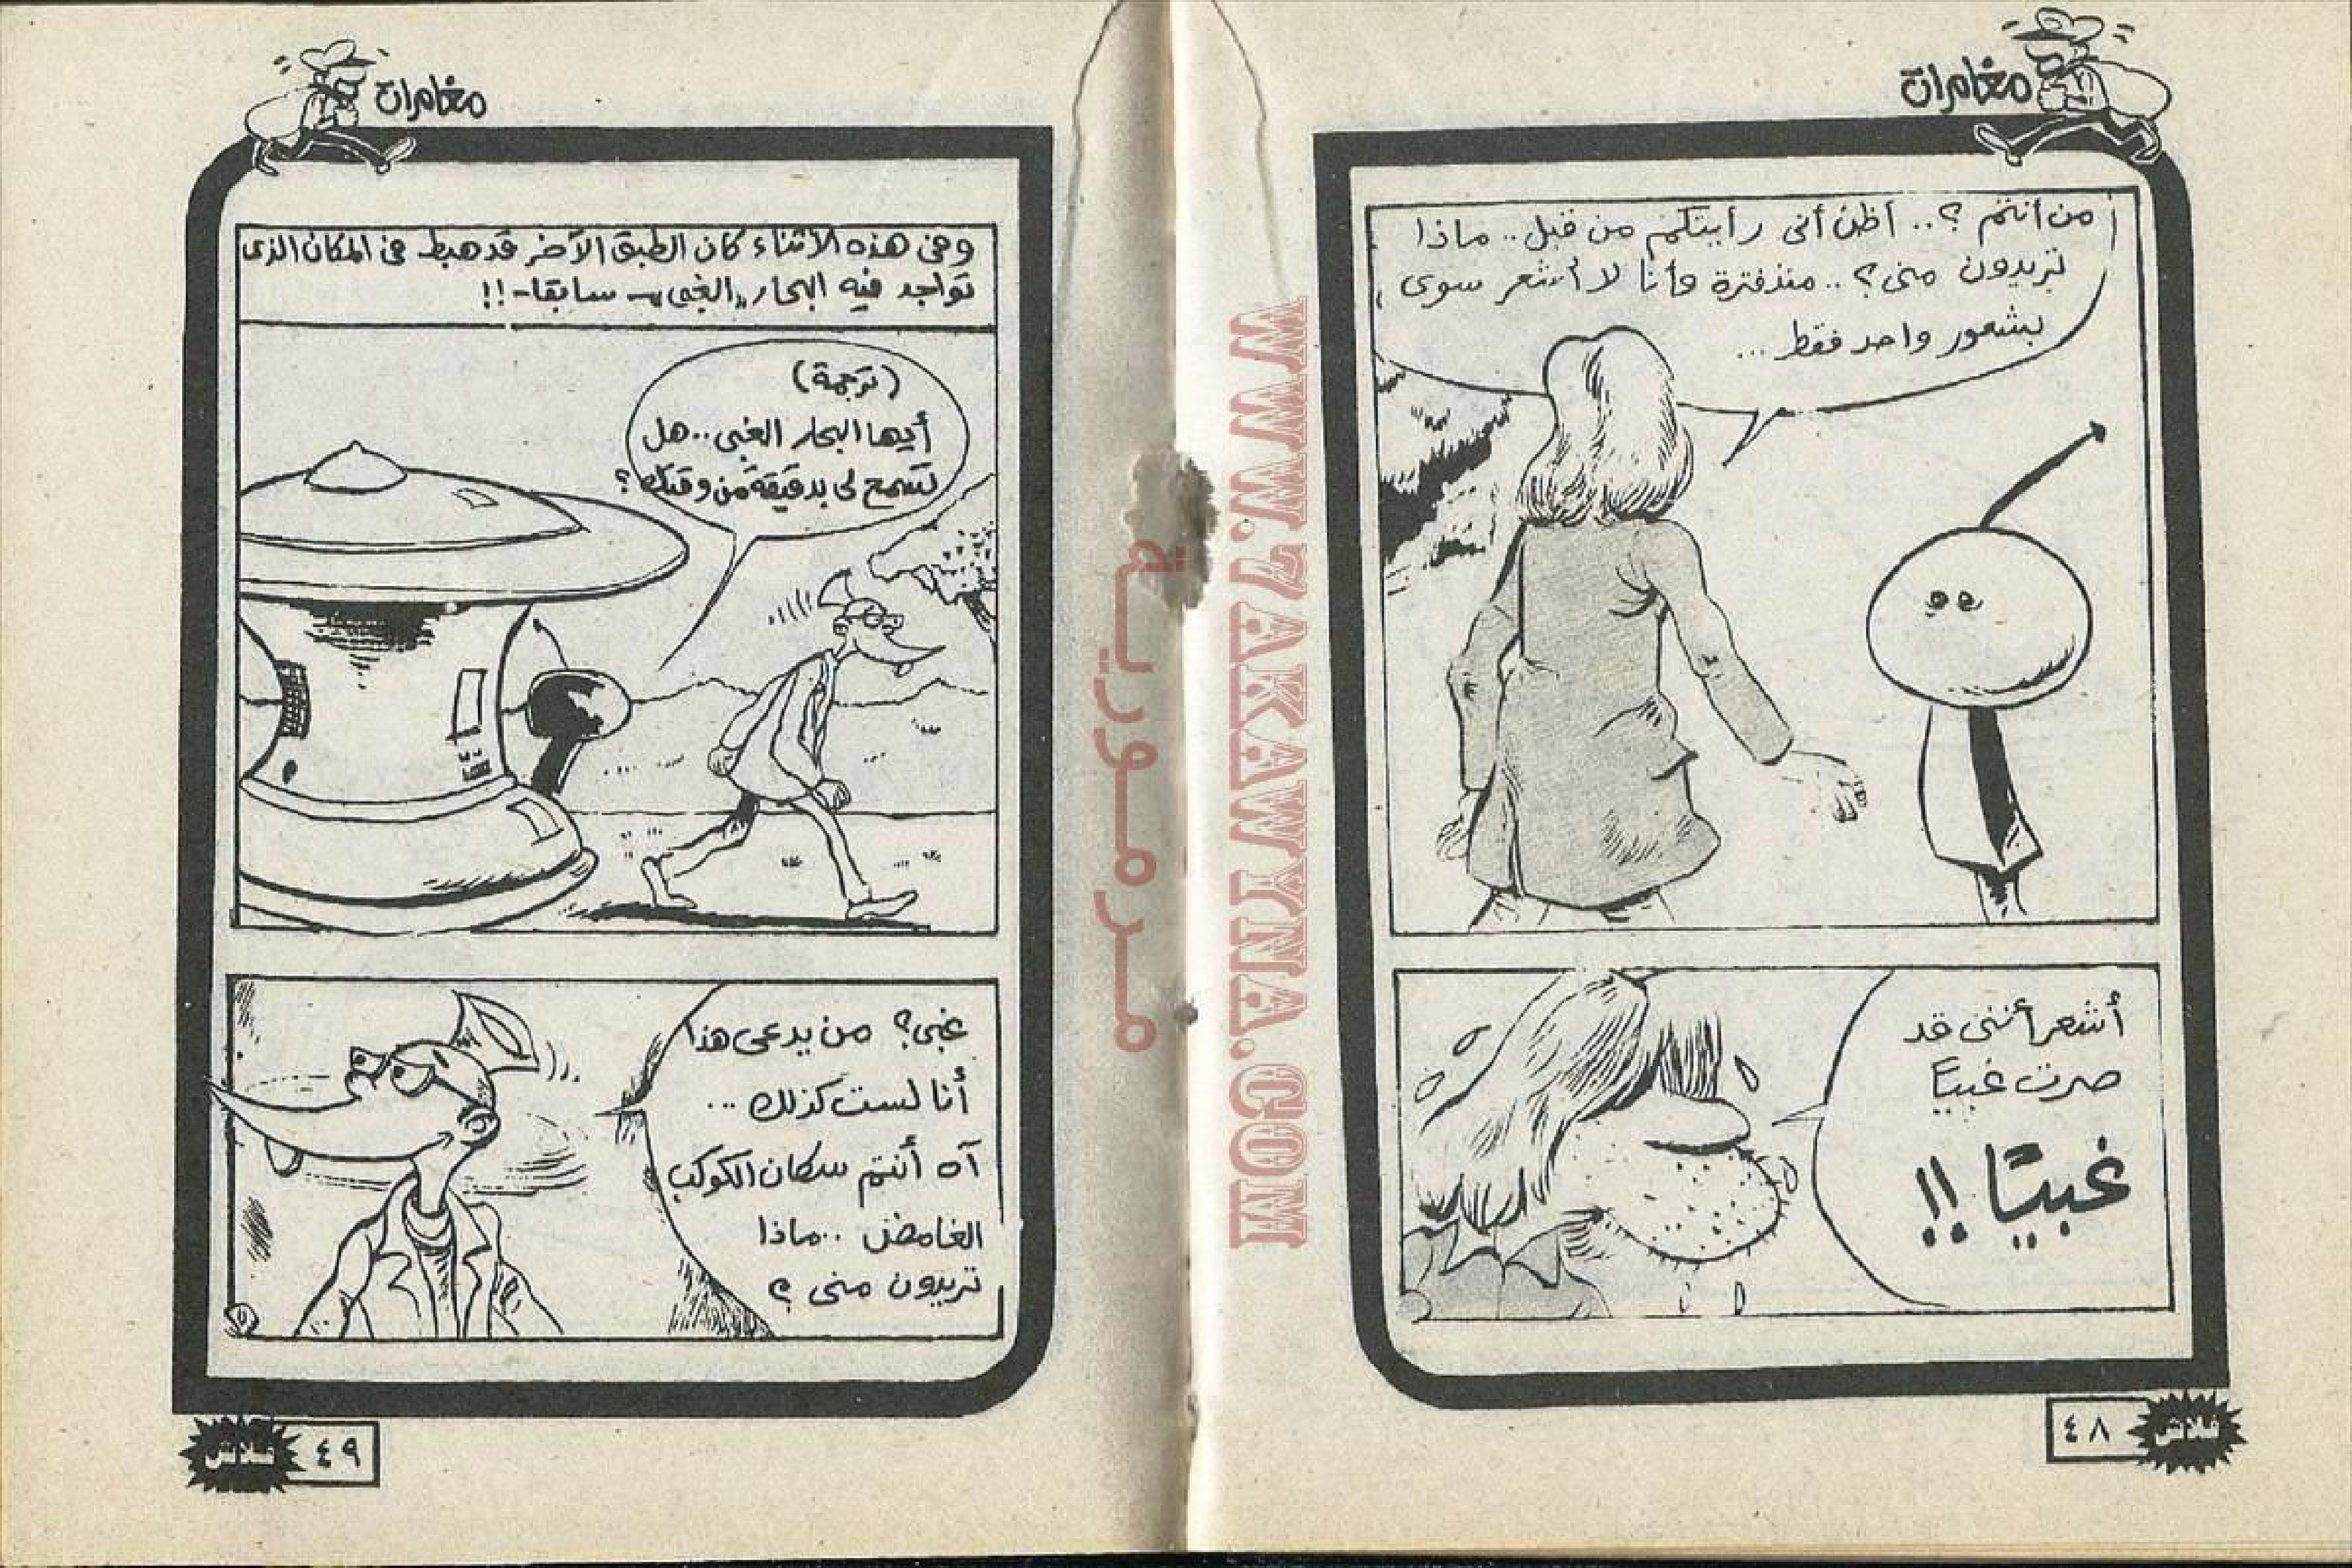 مغامرات
من أنتم ؟.. أظن أنى رأيتكم من قبل.. ماذا
تريدون منى ؟.. منذ فترة وأنا لا أشعر سوى
بشعور واحد فقط...
أشعر أننى قد
صرت غبيًا
غبيًا !!
٤٨
فلاش
مغامرات
وفى هذه الأثناء كان الطبق الآخر قد هبط فى المكان الذى
تواجد فيه البحار "الغبى" - سابقا - !!
(ترجمة)
أيها البحار الغبى.. هل
تسمح لى بدقيقة من وقتك ؟
غبى ؟ من يدعى هذا
أنا لست كذلك ...
آه أنتم سكان الكوكب
الغامض.. ماذا
تريدون منى ؟
٤٩
فلاش
WWW.7AKAWYNA.COM
مرمورية